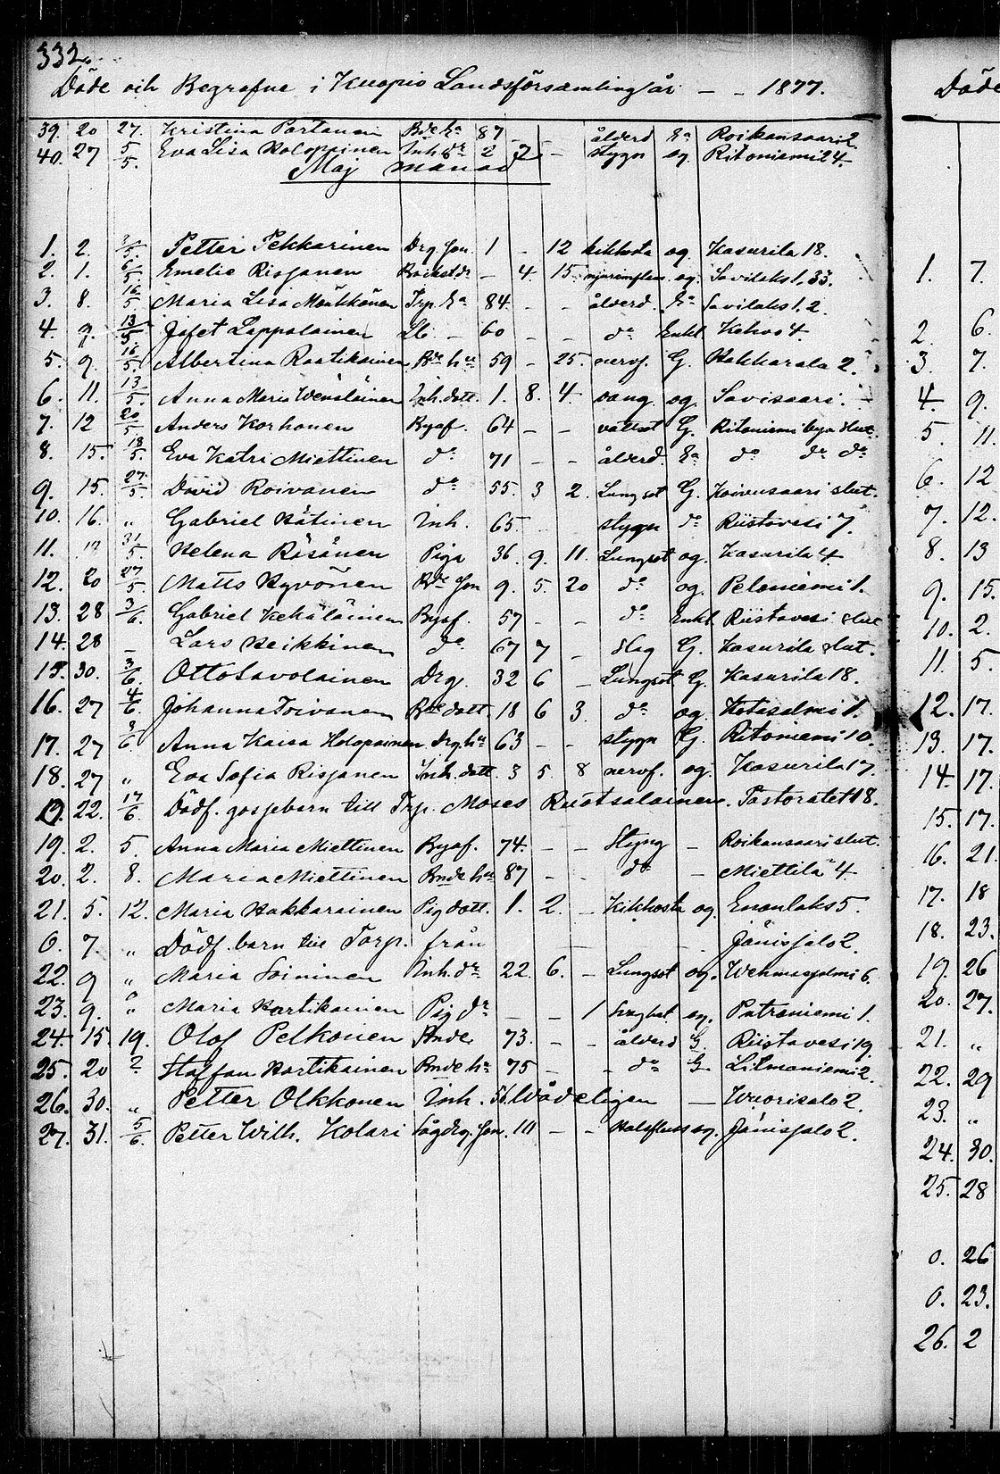 332.
Döde och Begrafne i Kuopio Landsförsamling år - - 1877.
39. 20 27. Kristina Partanen Bde Ea 87 - ålderd. Ea Roikansaari 2.
40. 27 5/5. Eva Lisa Holopainen Inh. dr 2 7 - stygn og Ritoniemi 24.
Maj månad
1. 2. Petter Pekkarinen Drg son 1 - 12 kikhosta og Kasurila 18.
2. 1. 6/5 Emelie Risganen - 4. 15. og. Savilaks 1, 33.
3. 8. 16/5 Maria Lisa Mönkkönen Trp. Ea 84. - - ålderd. Ea Savilaks 1. 2.
4. 9. 13/5. Jafet Lappalainen - 60 - - do Enkl. Kehvo 4.
5. 9. 16/5. Albertina Raatikainen Bde hu 59 - 25. nervf. G. Hakkarala 2.
6. 11. 13/5. Anna Maria Wenäläinen Inh. dott. 1. 8. 4. og. Savisaari. -
7. 12 20/5 Anders Korhonen Bysf. 64 - - G. Ritoniemi bya slut.
8. 15. 18/5. Eva Katri Miettinen do 71 - - ålderd. Ea do do do
9. 15. 27/5. David Roivanen do 55. 3 2. Lungsot G. Koivusaari slut.
10. 16. " Gabriel Hätinen Inh. 65. stygn do Riistavesi 7.
11. 31/5. Helena Räsänen Piga 36. 9. 11. Lungsot og. Kasurila 4
12. 20 27/5. Matts Hyvönen Bde son 9. 5. 20 do og. Peloniemi 1.
13. 28 3/6. Gabriel Kekäläinen Bysf. 57 - - do Enkl. Riistavesi slut
14. 28 - Lars Heikkinen do 67 7 - slag G. Kasurila slut.
15. 30. 3/6. Otto Savolainen Drg. 32 6 - Lungsot G. Kasurila 18.
16. 27 4/6. Johanna Toivanen Bde dott. 18 6 3. do og. Kotasalmi 1.
17. 27 3/6 Anna Kaisa Holopainen Drg. hu 63 - - stygn G. Ritoniemi 10.
18. 27. " Eva Sofia Risganen Inh. dott 3 5. 8 nervf. og. Kasurila 17.
0. 22. 17/6. Dödf. gossebarn till Trp. Moses Ruotsalainen. Pastoratet 18.
19. 2. 5. Anna Maria Miettinen Bysf. 74. - - Styng - Roikansaari slut.
20. 2. 8. Maria Miettinen Bnde hu 87 - - do - Miettilä 4
21. 5. 12. Maria Hakkarainen Pig dott. 1. 2. - Kikhosta og. Enonlaks 5.
0. 7. " Dödf. barn till Torp. från - - - Jänissalo 2.
22. 9 " Maria Soininen Inh. dr 22. 6. - Lungsot og. Wehmasjalmi 6.
23. 9. " Maria Hartikainen Pig dr - - 1 og. Putroniemi 1.
24. 15. 19. Olof Pelkonen Bnde. 73. - - ålderd G. Riistavesi 19.
25. 20 2. Staffan Hartikainen Bnde hn 75 - - do G. Litmaniemi 2.
26. 30. " Petter Olkkonen Inh. 56. Wådeligen - Wuorisalo 2.
27. 31. 5/6. Petter Wilh. Kolari son. - - Halsfluss og. Jänissalo 2.
Döde
1. 7.
2. 6.
3. 7.
4. 9.
5. 11.
6. 12
7. 12.
8. 13
9. 15.
10. 2.
11. 5.
12. 17.
13. 17.
14. 17.
15. 17.
16. 21.
17. 18
18. 23.
19. 26
20. 27.
21. "
22. 29
23. "
24. 30.
25. 28
0. 26
0. 23.
26. 2